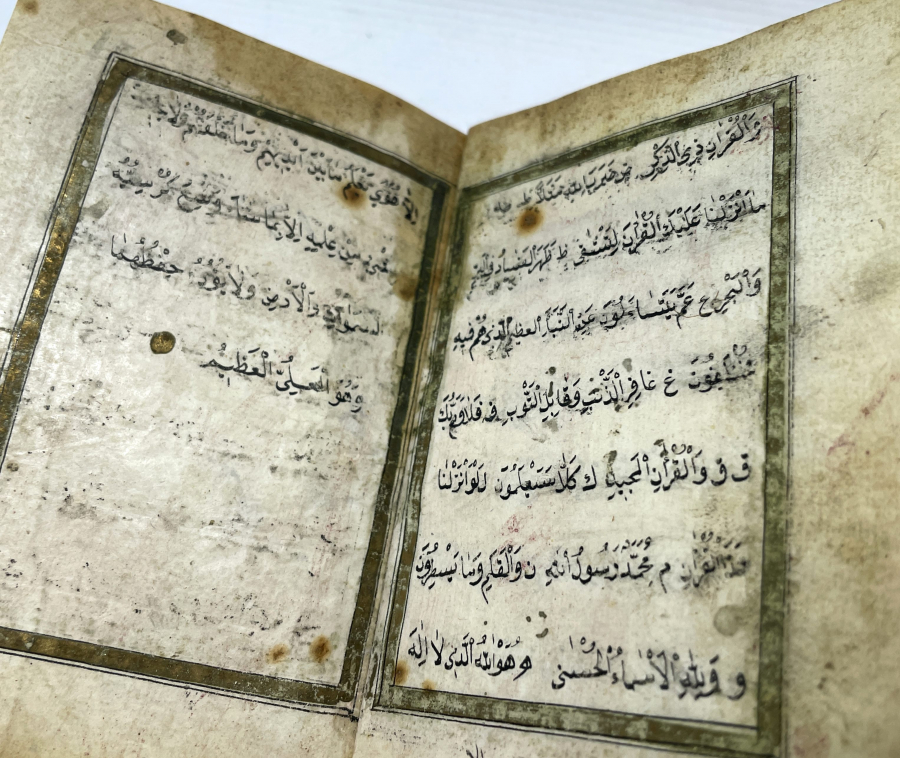 وَالْقُرْاٰنِ ذِي الذِّكْرِ ض ضرب الله مثلا ط طه
ما اَنْزَلْنا عَلَيْكَ الْقُرْاٰنَ لِتَشْقٰى ظ ظَهَرَ الفساد في البر
وَالْبَحْرِ ع عَمَّ يَتَسَاءَلُونَ عَنِ النَّبَأِ العظيم الَّذي هُمْ فيهِ
مُخْتَلِفُونَ غ غافِرِ الذَّنْبِ وَقابِلِ التَّوْبِ ف فَلا وَرَبِّكَ
ق ق وَالْقُرْاٰنِ الْمَجيدِ ك كَلّا سَيَعْلَمُونَ ل لَوْ اَنْزَلْنا
هٰذَا الْقُرْاٰنَ م مُحَمَّدٌ رَسُولُ اللهِ ن وَالْقَلَمِ وَما يَسْطُرُونَ
و وَلِلّٰهِ الْاَسْماءُ الْحُسْنٰى ه هُوَ اللهُ الَّذي لا اِلٰهَ
الا
اِلّا هُوَ يَعْلَمُ ما بَيْنَ اَيْديهِمْ وَما خَلْفَهُمْ وَلا
مِنْ عِلْمِهِ اِلّا بِما شاءَ وَسِعَ كُرْسِيُّهُ
السَّمٰوٰاتِ وَالْاَرْضَ وَلا يَؤُدُهُ حِفْظُهُما
وَهُوَ الْعَلِيُّ الْعَظيمُ